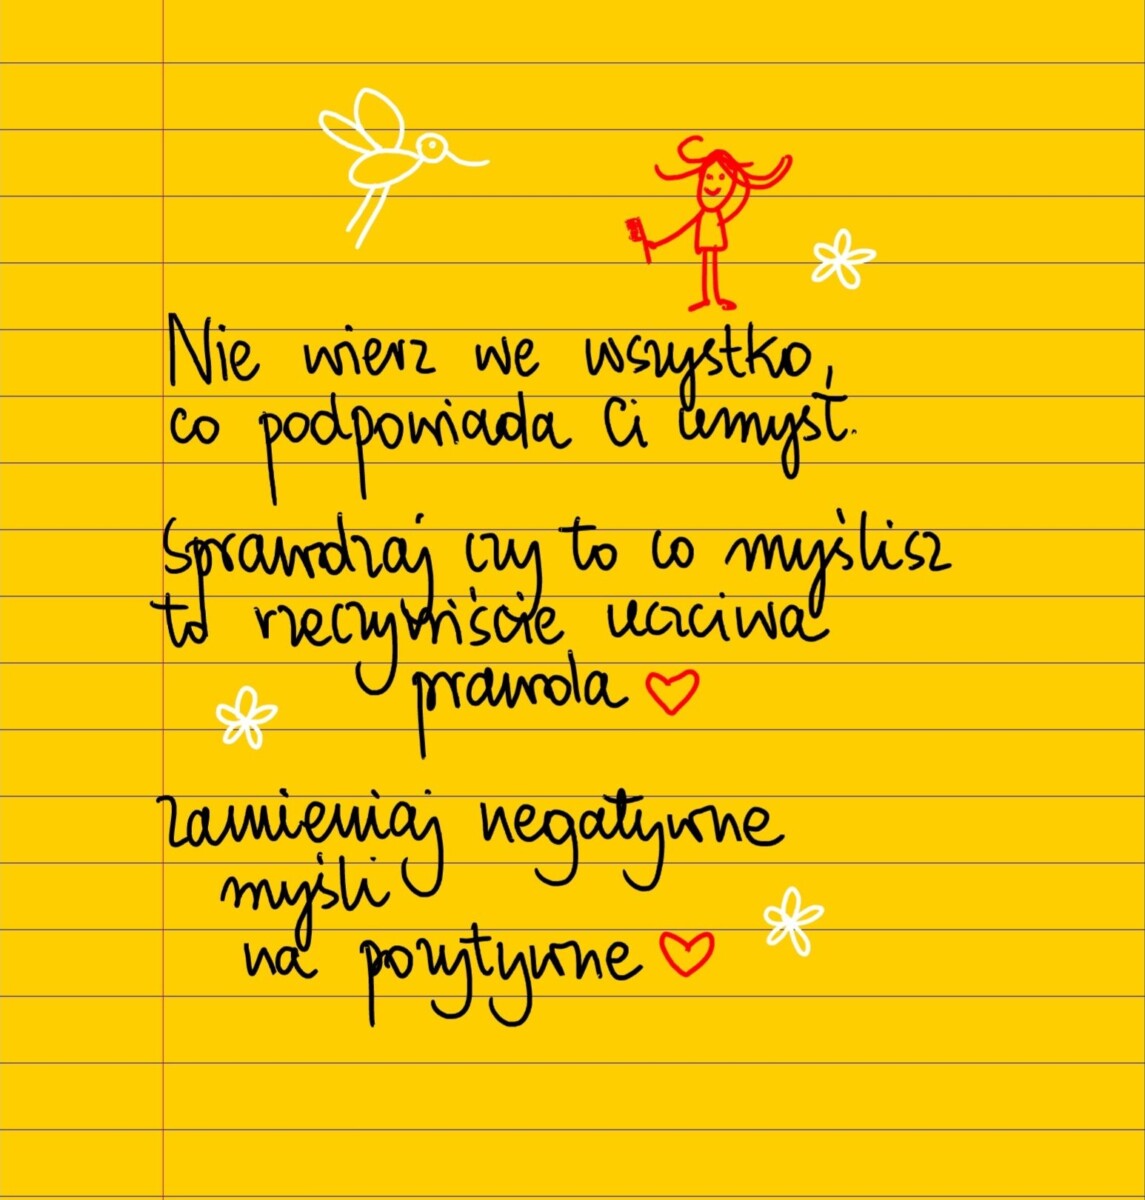 Nie wierz we wszystko,
co podpowiada Ci umysł.
Sprawdzaj czy to co myślisz
to rzeczywiście uczciwa
prawda
Zamieniaj negatywne
myśli
na pozytywne